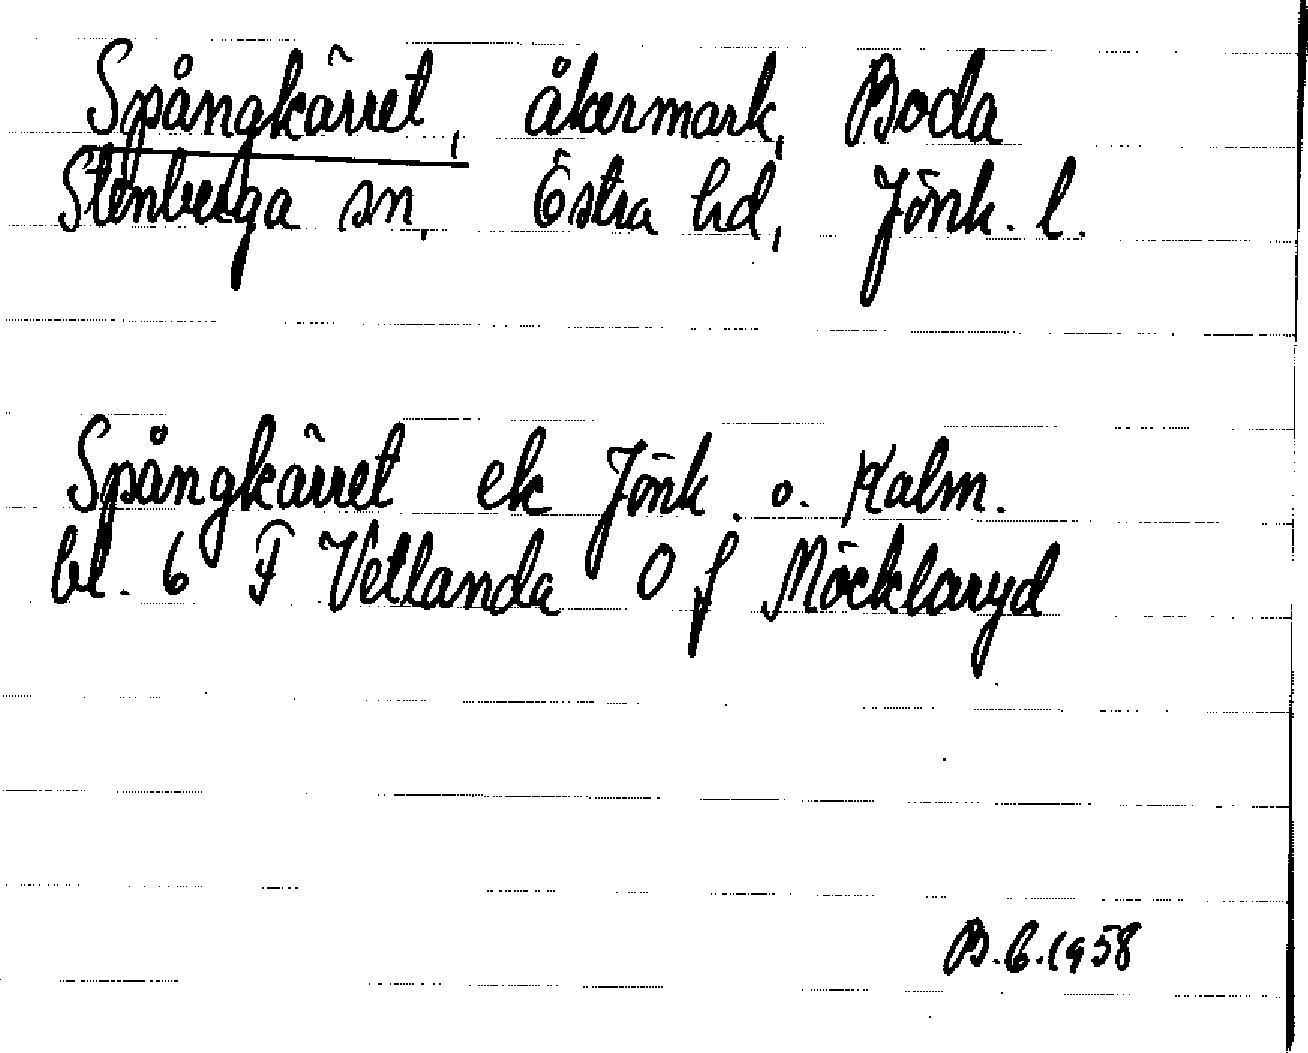 Spångkärret, åkermark, Boda
Stenberga sn. Östra hd, Jönk. l.
Spångkärret ek Jönk. o. Kalm.
bl. 6 F Vetlanda O f Möcklaryd
B.6.1958